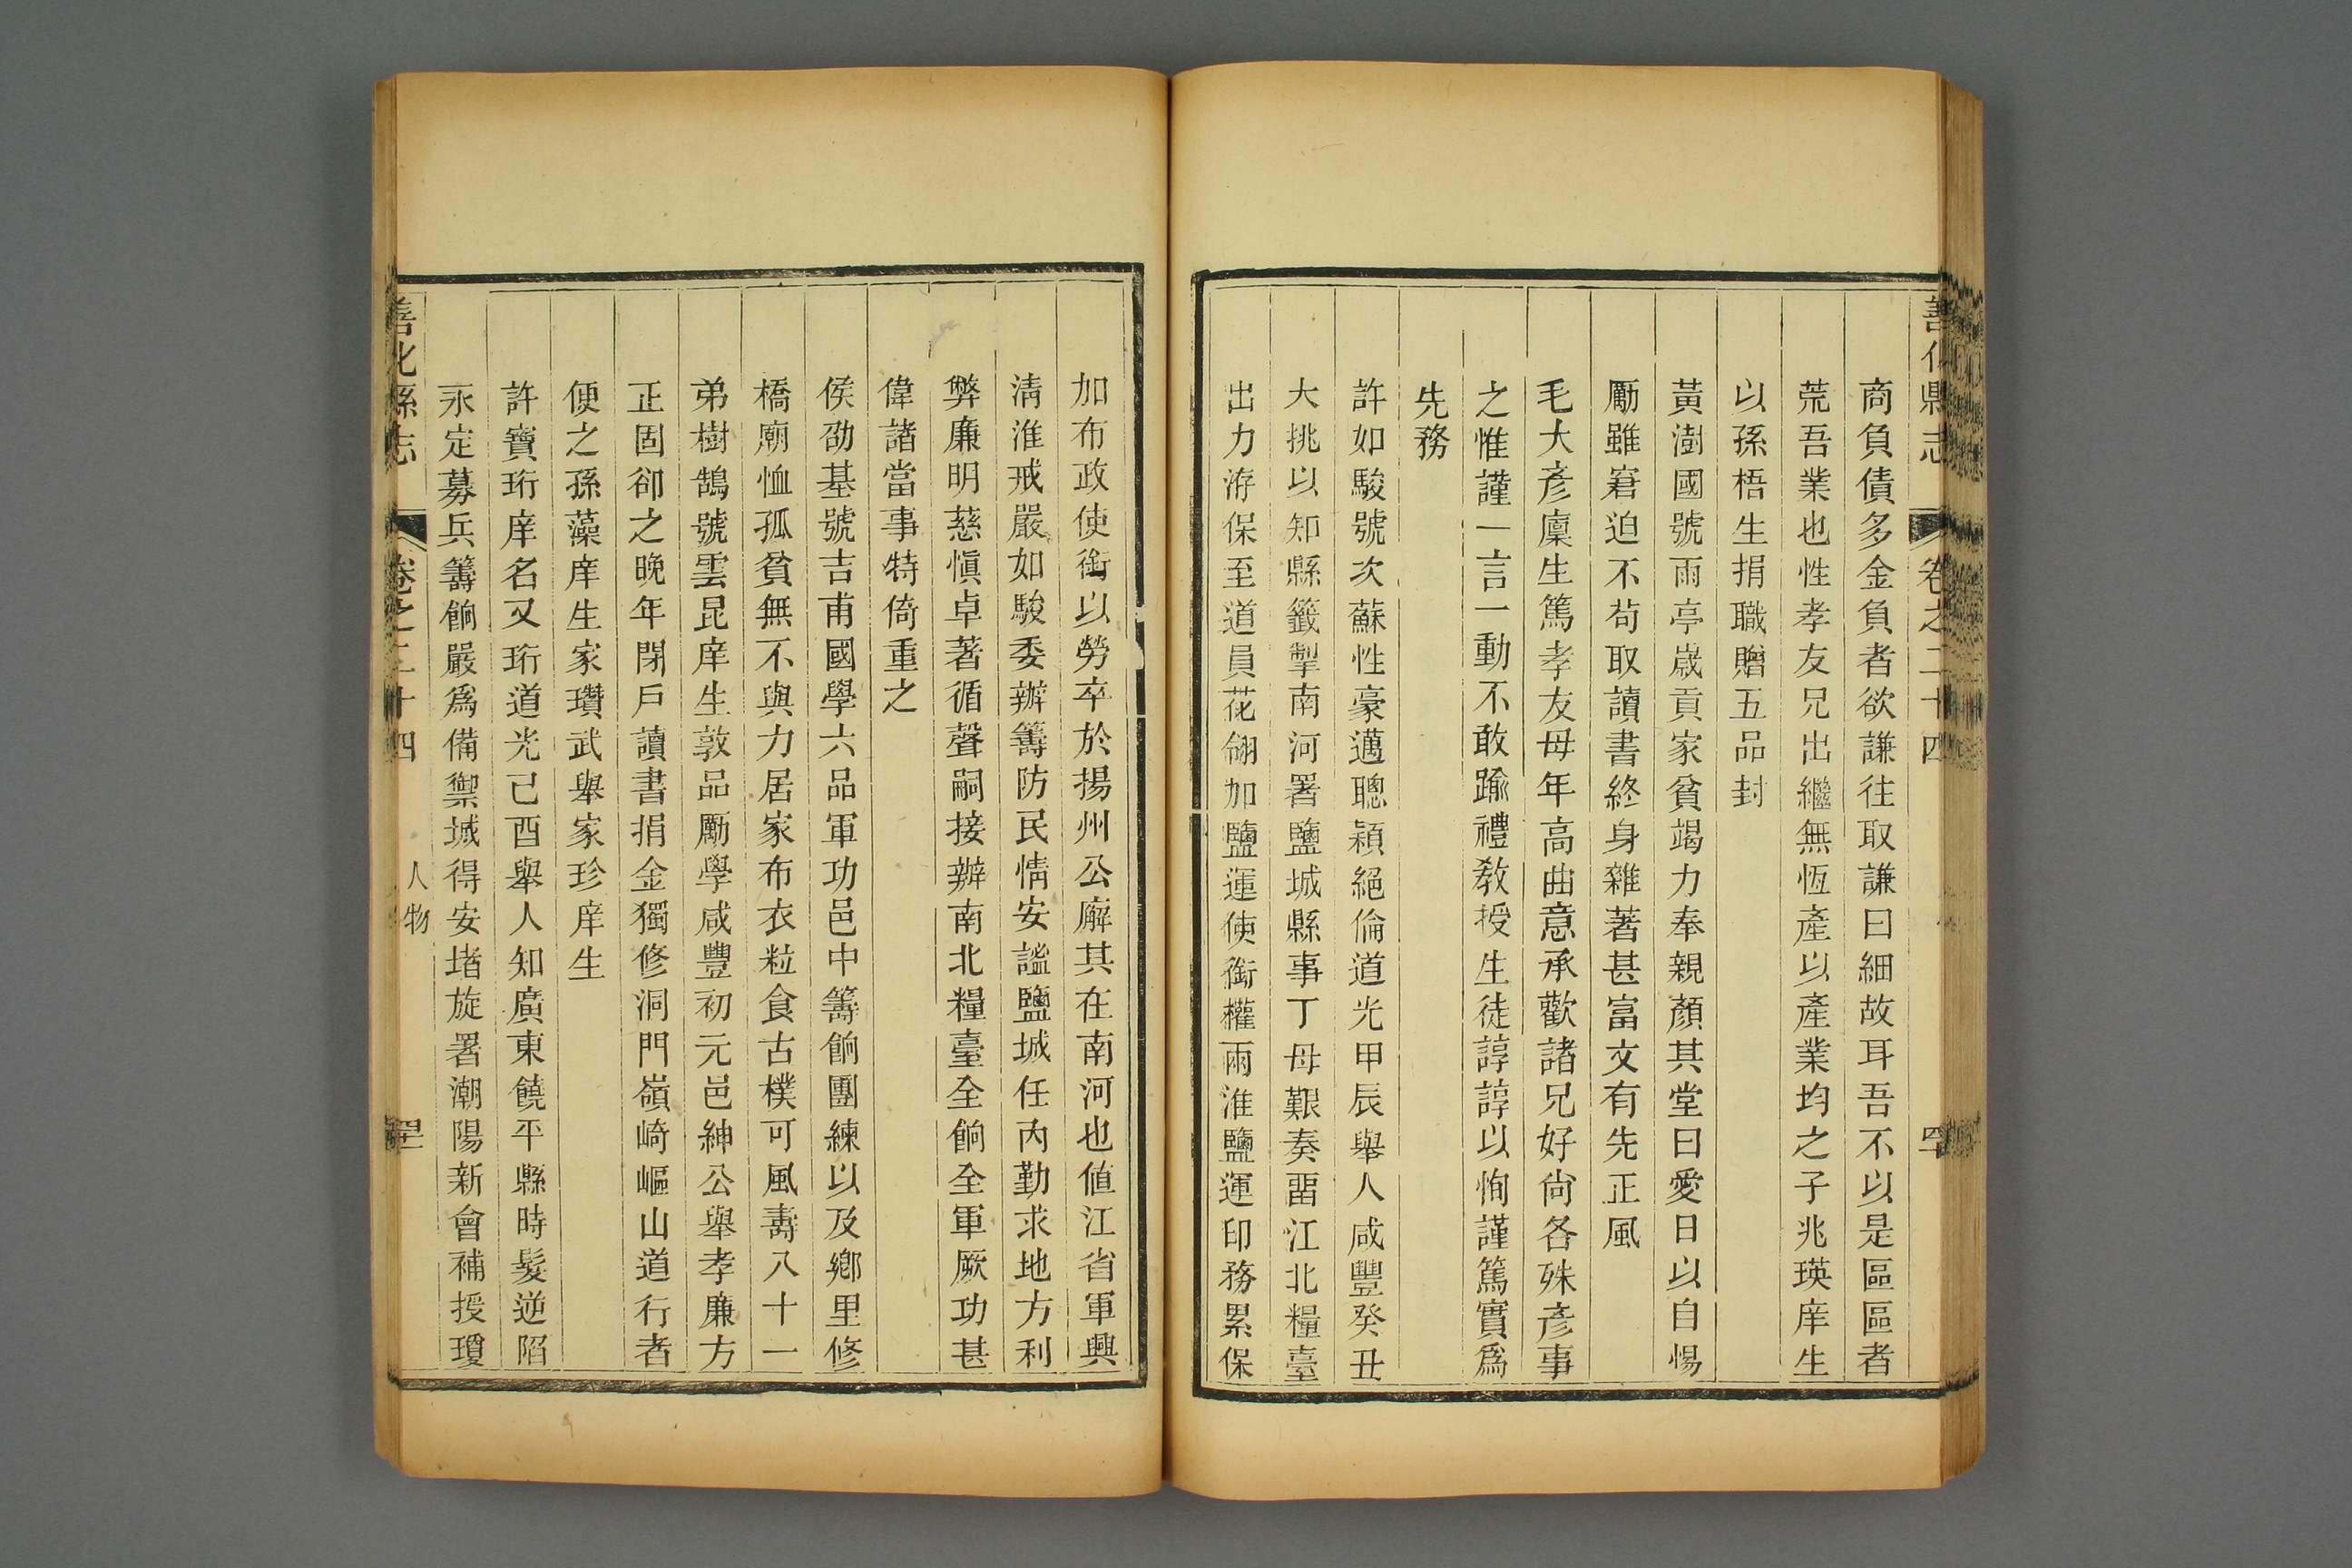 善化縣志
卷之二十四
商負債多金負者欲謙往取謙曰細故耳吾不以是區區者
荒吾業也性孝友兄出繼無恆產以產業均之子兆瑛庠生
以孫梧生捐職贈五品封
黃澍國號雨亭歲貢家貧竭力奉親顏其堂曰愛日以自惕
勵雖窘迫不茍取讀書終身雜著甚富文有先正風
毛大彥廩生篤孝友母年高曲意承歡諸兄好尙各殊彥事
之惟謹一言一動不敢踰禮敎授生徒諄諄以恂謹篤實爲
先務
許如駿號次蘇性豪邁聰穎絕倫道光甲辰舉人咸豐癸丑
大挑以知縣籤掣南河署鹽城縣事丁母艱奏畱江北糧臺
出力洊保至道員花翎加鹽運使銜權兩淮鹽運印務累保
加布政使銜以勞卒於揚州公廨其在南河也値江省軍興
淸淮戒嚴如駿委辦籌防民情安謐鹽城任內勤求地方利
弊廉明慈愼卓著循聲嗣接辦南北糧臺全餉全軍厥功甚
偉諸當事特倚重之
侯劭基號吉甫國學六品軍功邑中籌餉團練以及鄉里修
橋廟恤孤貧無不與力居家布衣粒食古樸可風壽八十一
弟樹鵠號雲昆庠生敦品勵學咸豐初元邑紳公舉孝廉方
正固卻之晚年閉戶讀書捐金獨修洞門嶺崎嶇山道行者
便之孫藻庠生家瓚武舉家珍庠生
許寶珩庠名又珩道光己酉舉人知廣東饒平縣時髮逆陷
永定募兵籌餉嚴爲備禦城得安堵旋署潮陽新會補授瓊
善化縣志
卷之二十四
人物